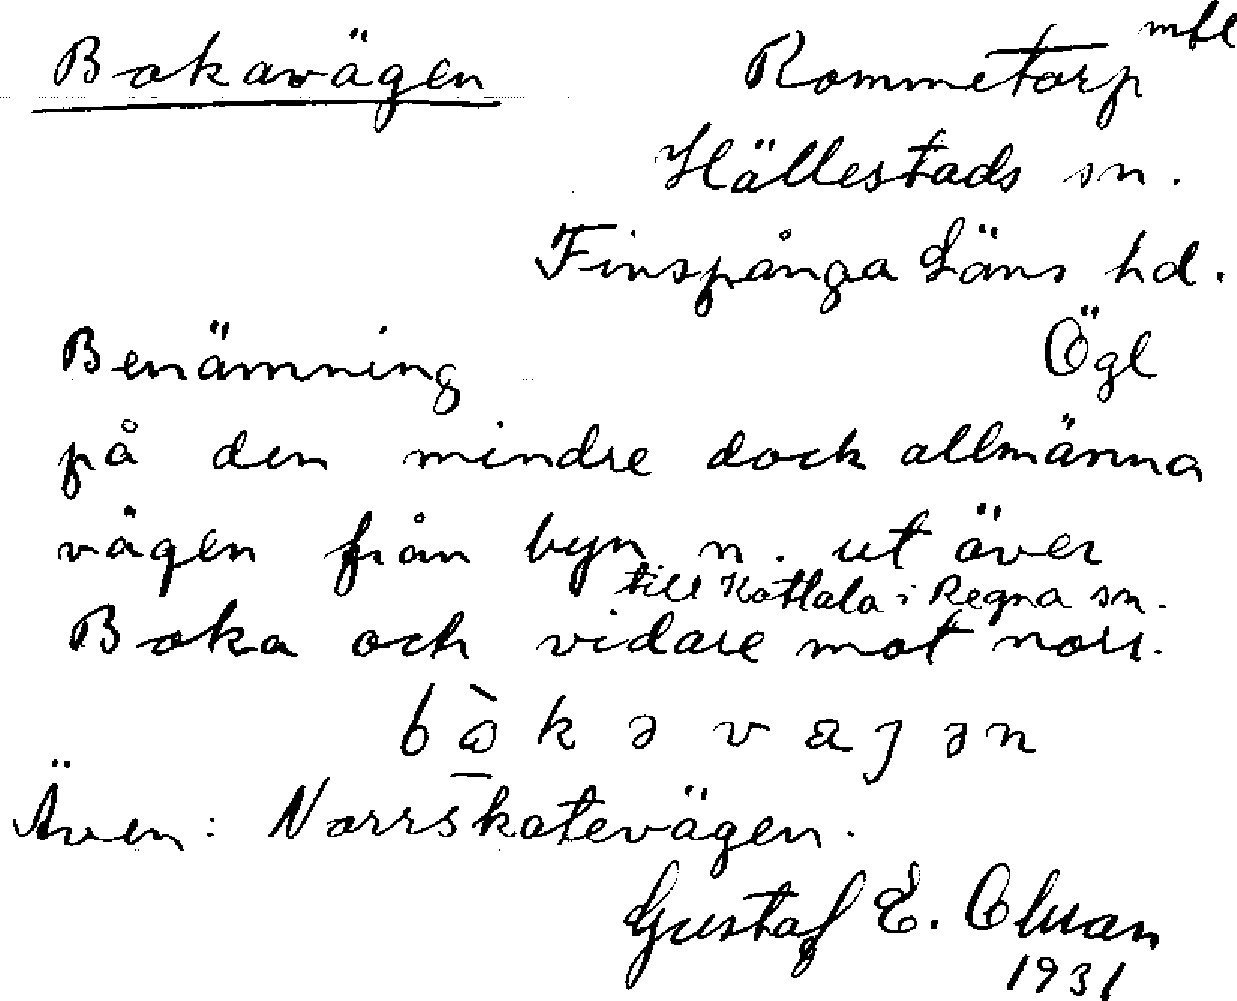 Bokavägen
Rommetorp mfl
Hällestads sn.
Finspånga Läns hd.
Ögl
Benämning
på den mindre dock allmänna
vägen från byn n. ut över
till Kottala i Regna sn.
Boka och vidare mot norr.
Även: Norrskatevägen.
Gustaf E.
1931